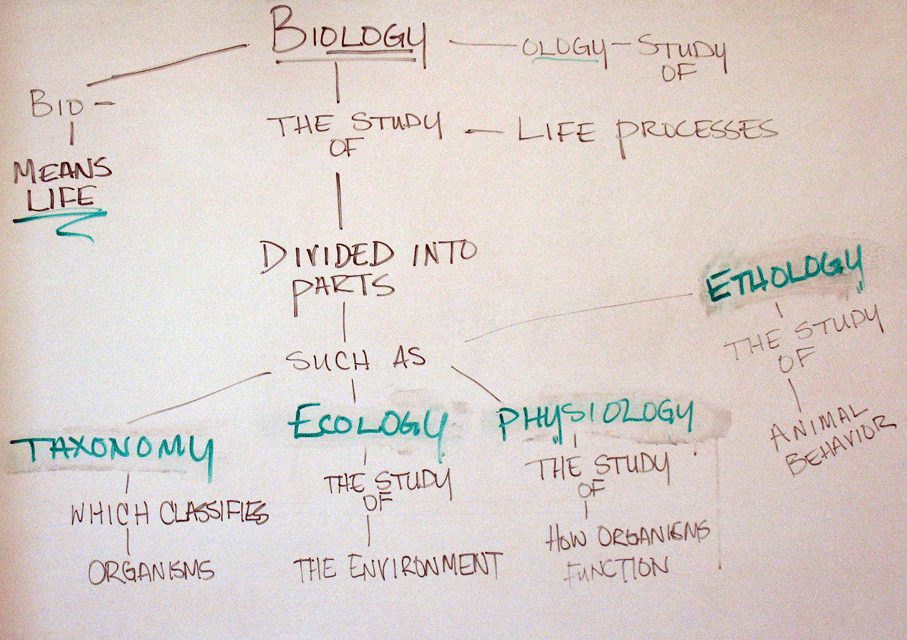 BIOLOGY
OLOGY - STUDY
OF
BIO -
MEANS
LIFE
THE STUDY
OF
LIFE PROCESSES
DIVIDED INTO
PARTS
SUCH AS
TAXONOMY
WHICH CLASSIFIES
ORGANISMS
ECOLOGY
THE STUDY
OF
THE ENVIRONMENT
PHYSIOLOGY
THE STUDY
OF
HOW ORGANISMS
FUNCTION
ETHOLOGY
THE STUDY
OF
ANIMAL
BEHAVIOR